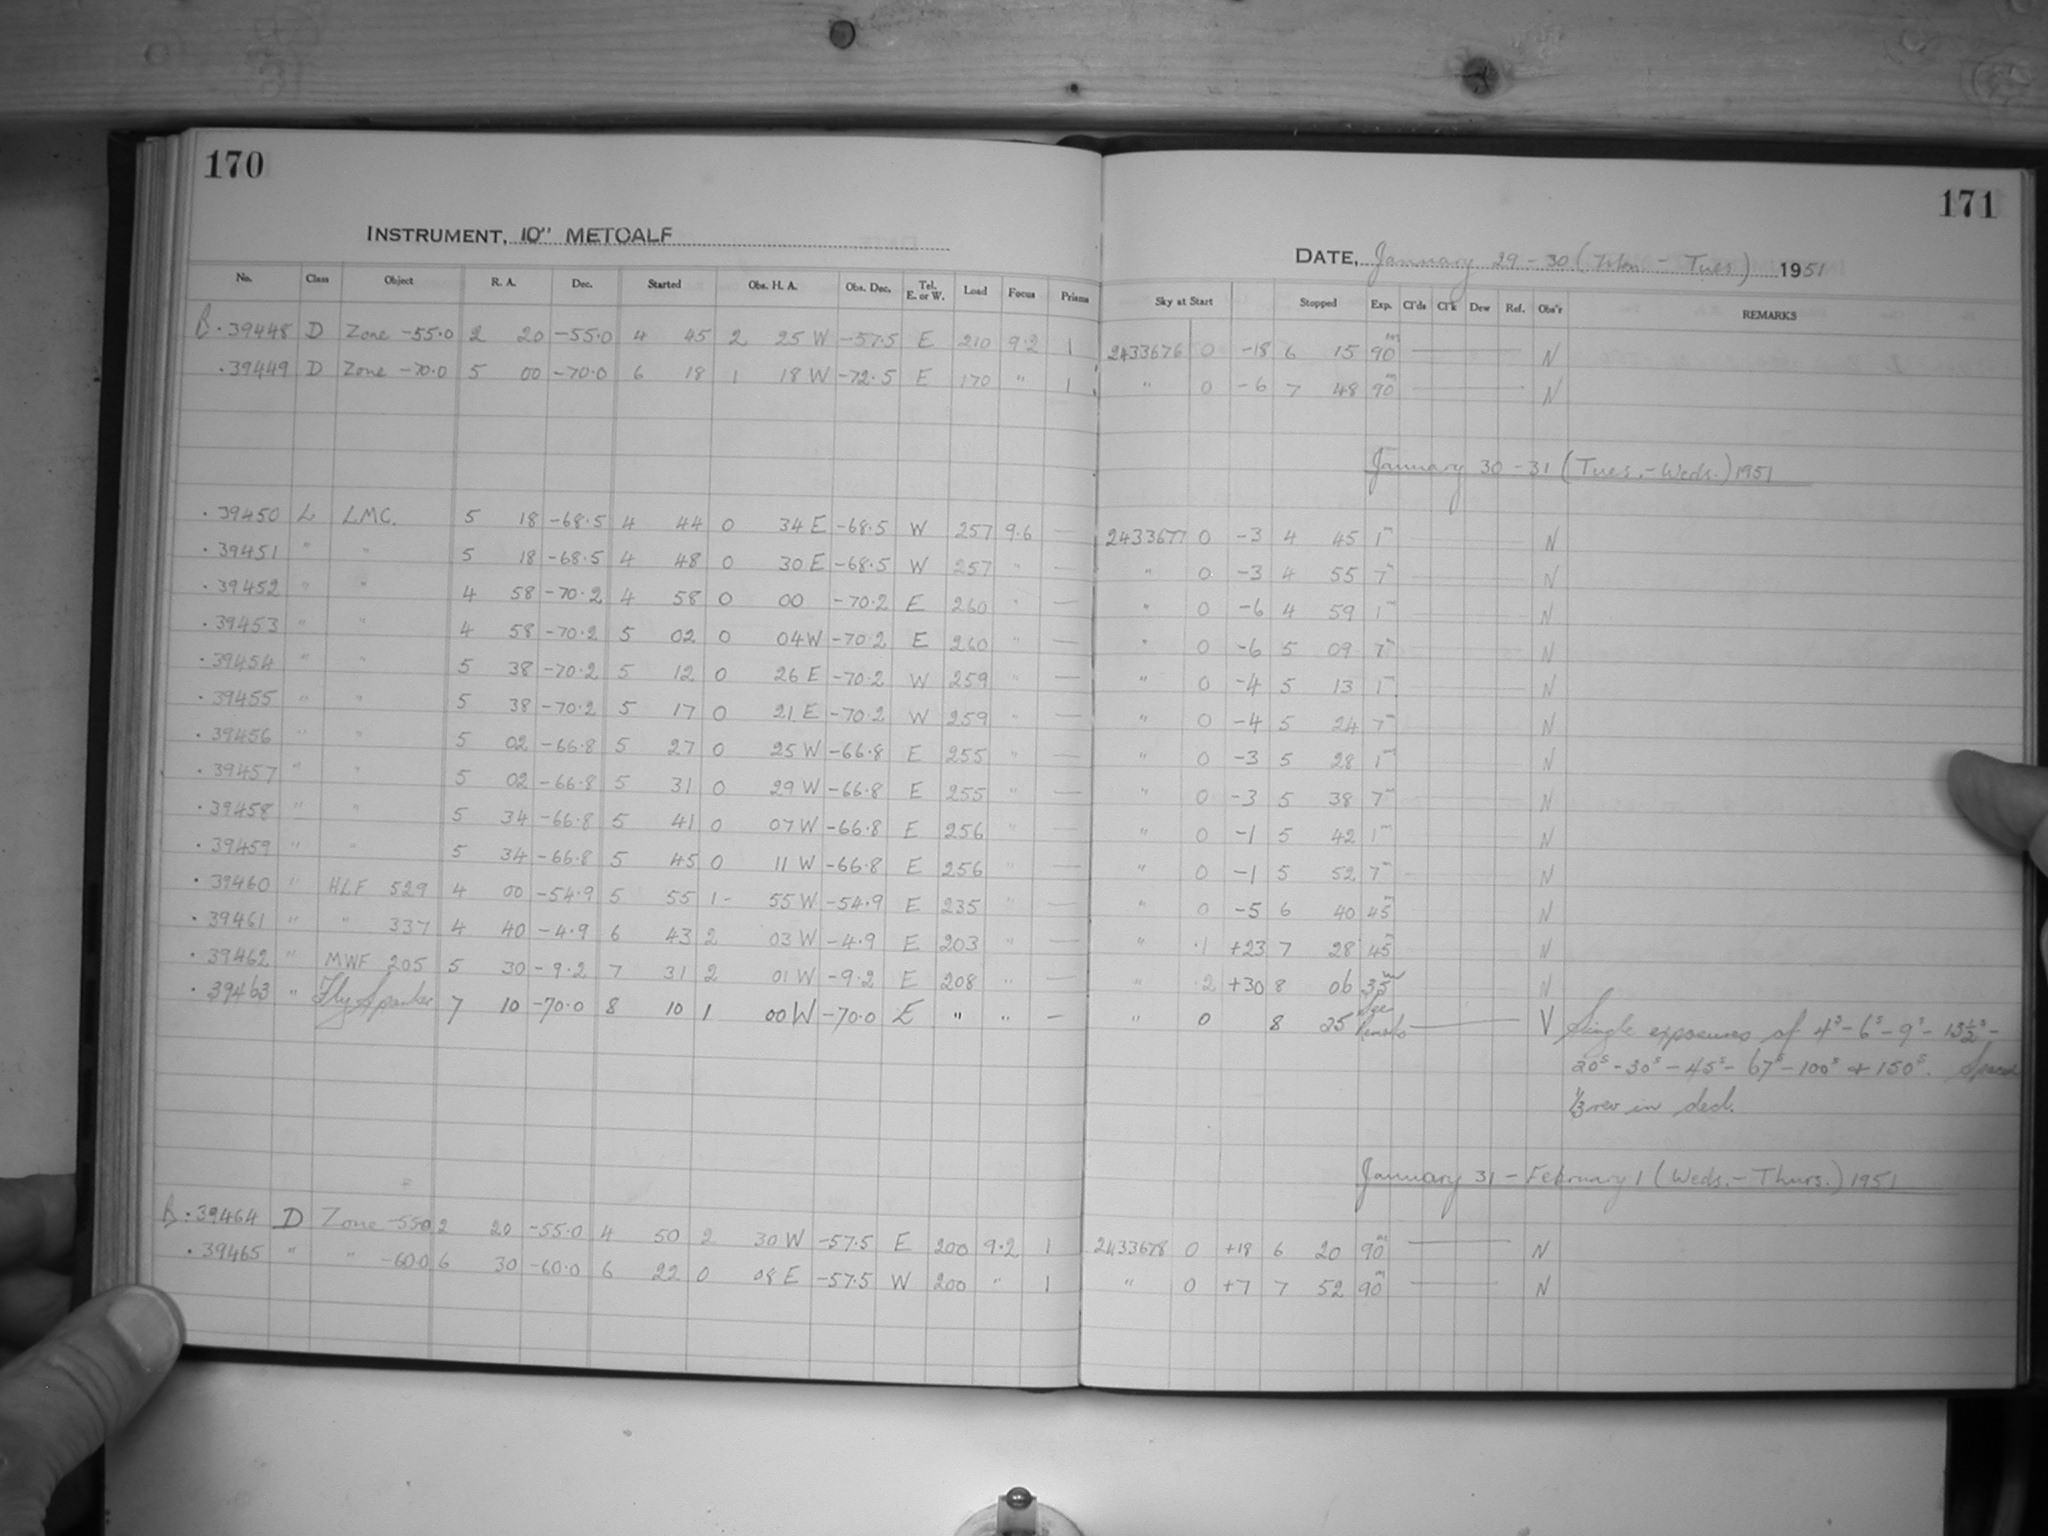 170
INSTRUMENT, 10" METCALF
No. Class Object R. A. Dec. Started Obs. H. A. Obs. Dec. Tel. E. or W. Load Focus Prisms
B.39448 D Zone -55.0 2 20 -55.0 4 45 2 25 W -57.5 E 210 9.2 1
.39449 D Zone -70.0 5 00 -70.0 6 18 1 18 W -72.5 E 170 " 1
.39450 L LMC. 5 18 -68.5 4 44 0 34 E -68.5 W 257 9.6 —
.39451 " " 5 18 -68.5 4 48 0 30 E -68.5 W 257 " —
.39452 " " 4 58 -70.2 4 58 0 00 -70.2 E 260 " —
.39453 " " 4 58 -70.2 5 02 0 04 W -70.2 E 260 " —
.39454 " " 5 38 -70.2 5 12 0 26 E -70.2 W 259 " —
.39455 " " 5 38 -70.2 5 17 0 21 E -70.2 W 259 " —
.39456 " " 5 02 -66.8 5 27 0 25 W -66.8 E 255 " —
.39457 " " 5 02 -66.8 5 31 0 29 W -66.8 E 255 " —
.39458 " " 5 34 -66.8 5 41 0 07 W -66.8 E 256 " —
.39459 " " 5 34 -66.8 5 45 0 11 W -66.8 E 256 " —
.39460 " HLF 529 4 00 -54.9 5 55 1 - 55 W -54.9 E 235 " —
.39461 " " 337 4 40 -4.9 6 43 2 03 W -4.9 E 203 " —
.39462 " MWF 205 5 30 -9.2 7 31 2 01 W -9.2 E 208 " —
.39463 " Fly Spanker 7 10 -70.0 8 10 1 00 W -70.0 E " " —
B.39464 D Zone -55.0 2 20 -55.0 4 50 2 30 W -57.5 E 200 9.2 1
.39465 " " -60.0 6 30 -60.0 6 22 0 08 E -57.5 W 200 " 1
171
DATE, January 29-30 (Mon - Tues) 1951
Sky at Start Stopped Exp. Cl'ds Cl'k Dew Ref. Obs'r REMARKS
2433676 0 -18 6 15 90m — N
" 0 -6 7 48 90m — N
January 30-31 (Tues.-Weds.) 1951
2433677 0 -3 4 45 1m — N
" 0 -3 4 55 7m — N
" 0 -6 4 59 1m — N
" 0 -6 5 09 7m — N
" 0 -4 5 13 1m — N
" 0 -4 5 24 7m — N
" 0 -3 5 28 1m — N
" 0 -3 5 38 7m — N
" 0 -1 5 42 1m — N
" 0 -1 5 52 7m — N
" 0 -5 6 40 45m — N
" .1 +23 7 28 45m — N
" .2 +30 8 06 35m — N
" 0 8 25 See Remarks — V Single exposures of 4s-6s-9s-13½s-
20s-30s-45s-67s-100s & 150s. Spaced
⅓ rev in decl.
January 31 - February 1 (Weds.- Thurs.) 1951
2433678 0 +18 6 20 90m — N
" 0 +7 7 52 90m — N